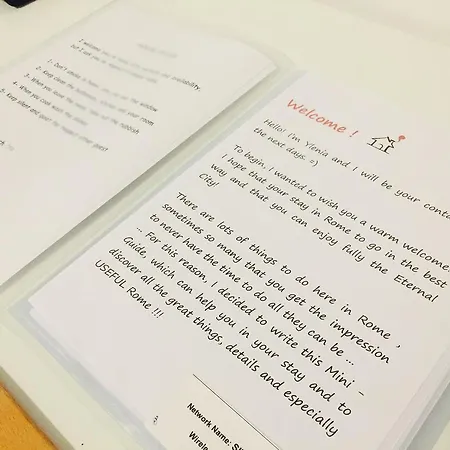 I welcome you
but I ask you to
1- Don't smoke
2- Keep clean the
3- When you leave the
4- When you cook
5- Keep silent and
Welcome !
Hello! I'm Ylenia and I will be your conta
the next days. =)
To begin, I wanted to wish you a warm welcome.
I hope that your stay in Rome to go in the best
way and that you can enjoy fully the Eternal
City!
There are lots of things to do here in Rome ,
sometimes so many that you get the impression
to never have the time to do all they can be ...
... For this reason, I decided to write this Mini -
Guide, which can help you in your stay and to
discover all the great things, details and especially
USEFUL Rome !!!
Network Name:
Wirele